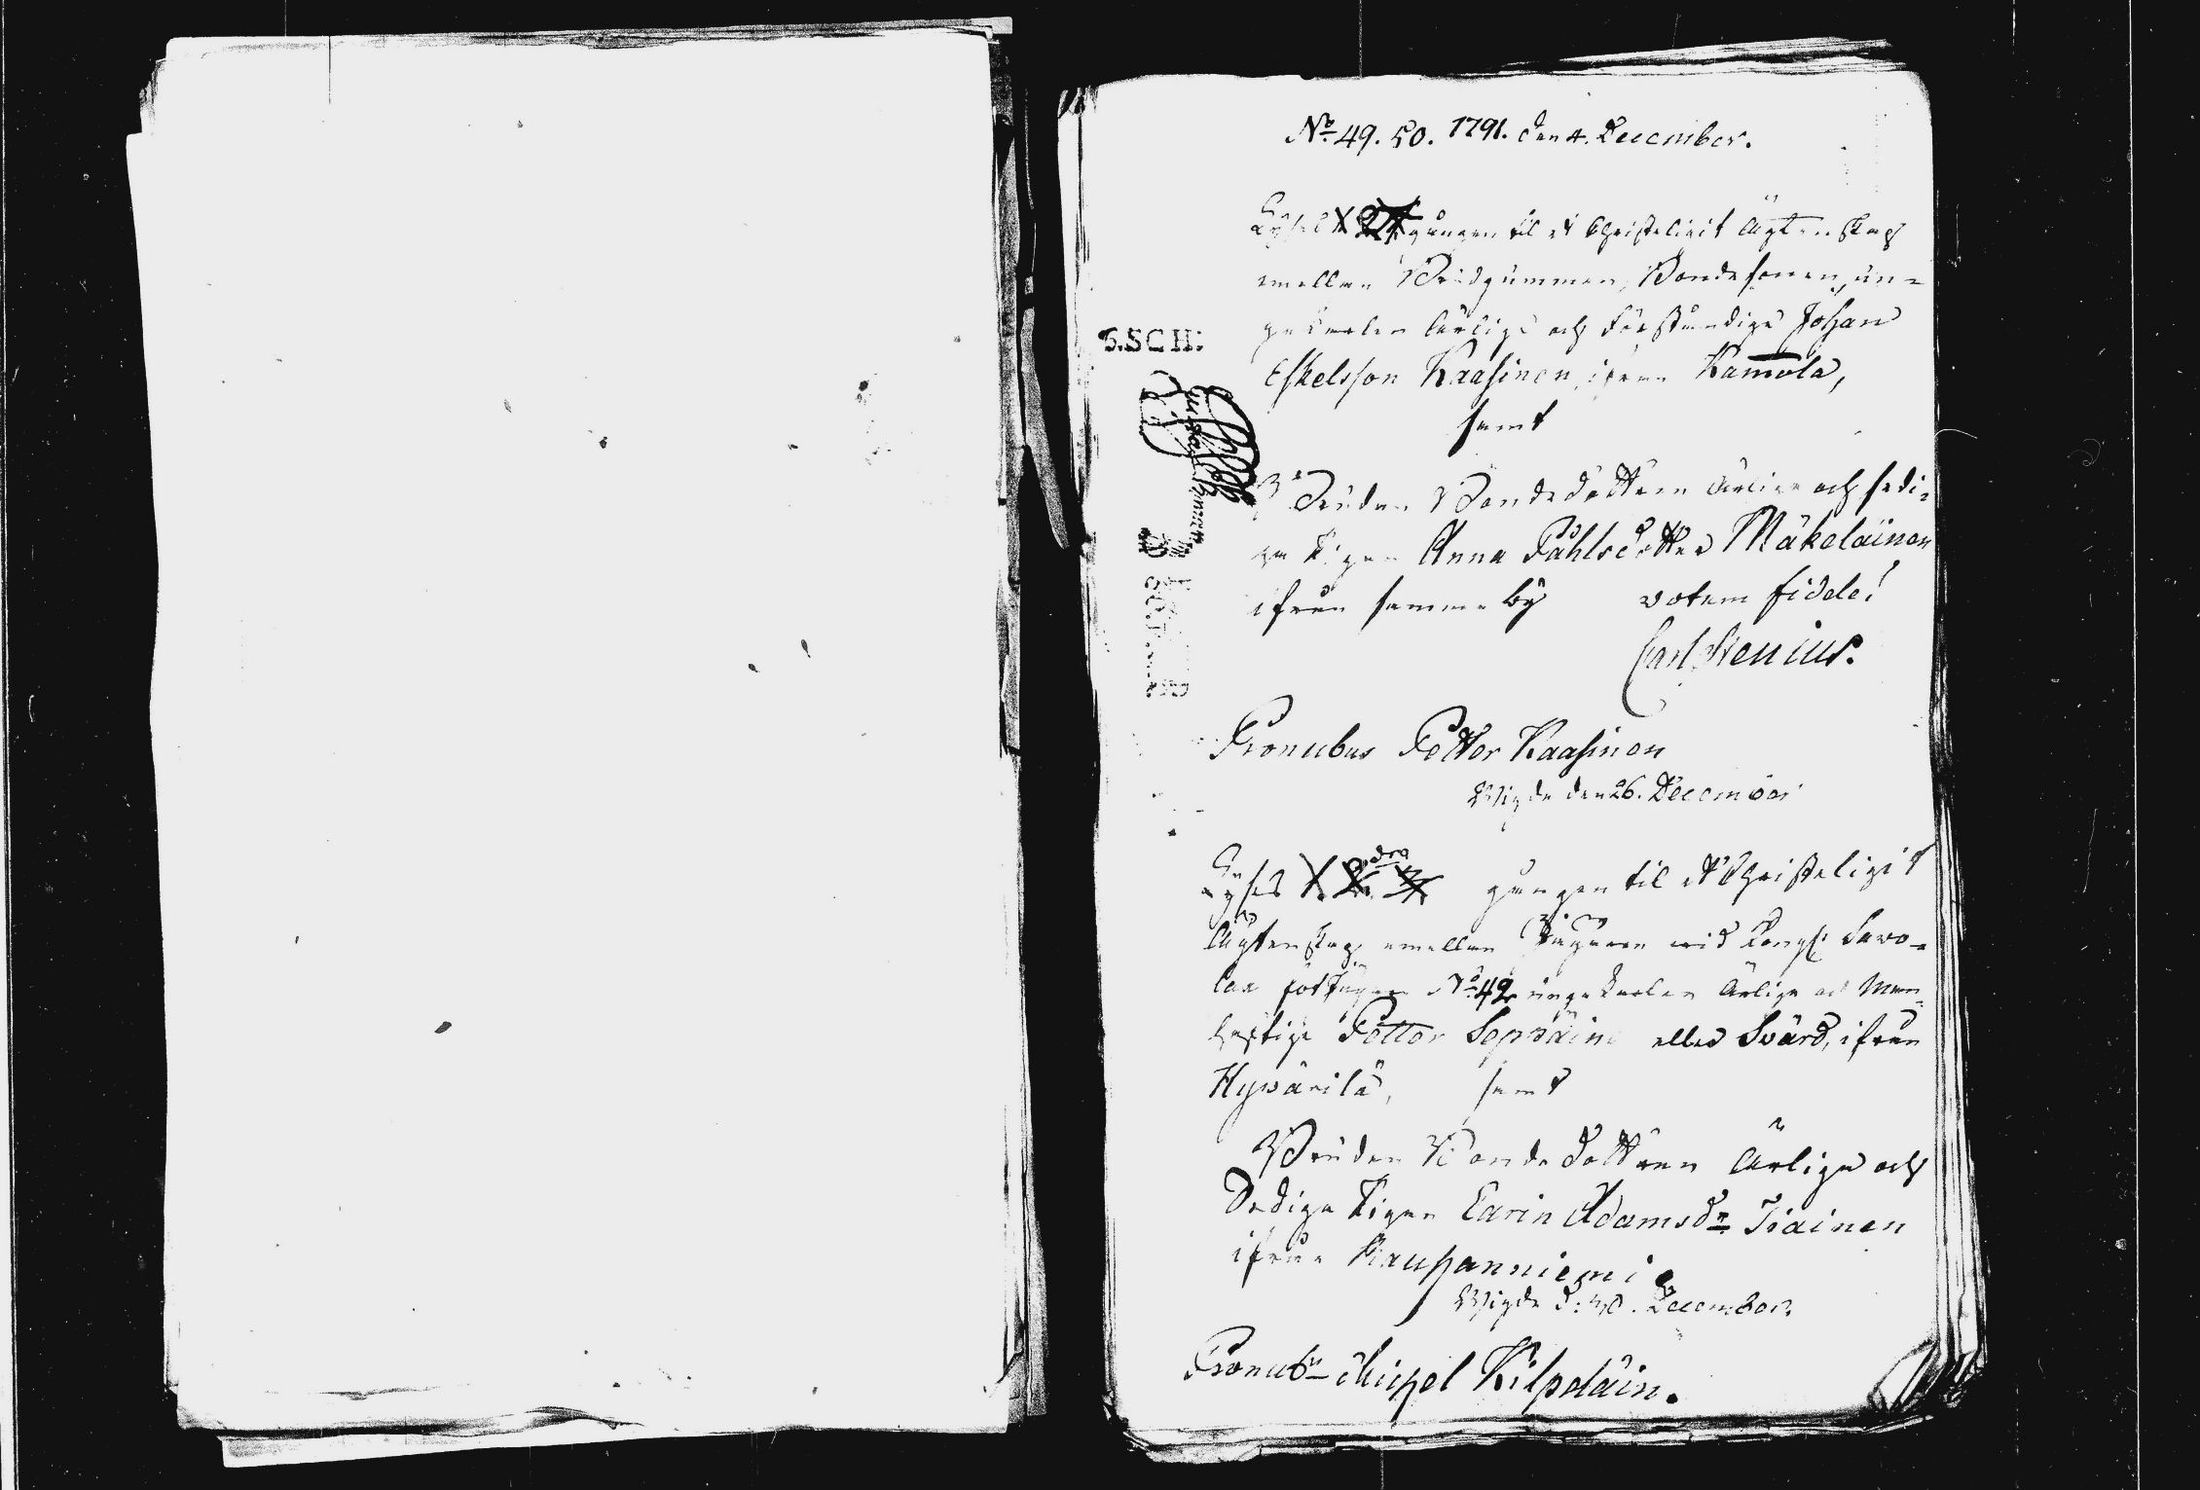 No. 49. 50. 1791. den 4. December.
Lyses gången til et Christeligit Ägtenskap
emellan Brudgummen, Bondesonen, un-
gekarlen Ärlige och Förståndige Johan
Eskelsson Kaasinen, ifrån Kamola,
samt
Bruden Bondedottren Ärliga och sedi-
ga Pigan Anna Påhlsdotter Mäkeläinen
ifrån samma by votem fidele!
Carl Stenius.
S.SCH:
Pronubus Petter Kaasinen
Wigde den 26. December
Lyses gången til et Christeligit
Ägtenskap emellan wid Kongl: Sawo-
lax No. 42 ungekarlen Ärlige och Man-
haftige Petter Seppäin eller Svärd, ifrån
Hypärilä, samt
Bruden Bondedottren Ärliga och
Sediga Pigan Carin Adamsdr Tiainen
ifrån Kaupanniemi
Wigde d: 30. December.
Pronub: Michel Kilpeläin.